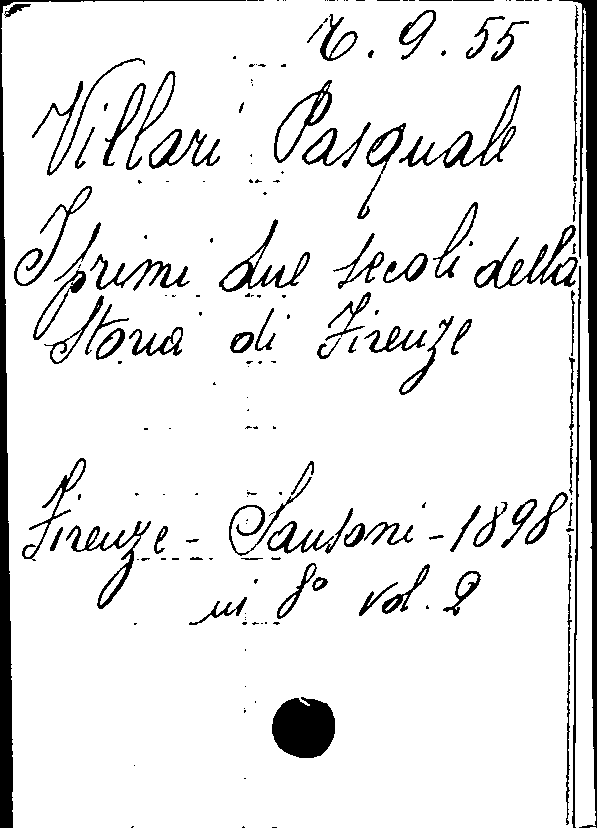 7. 9. 55
Villari Pasquale
I primi due secoli della
Storia di Firenze
Firenze - Sansoni - 1898
in 8° vol. 2